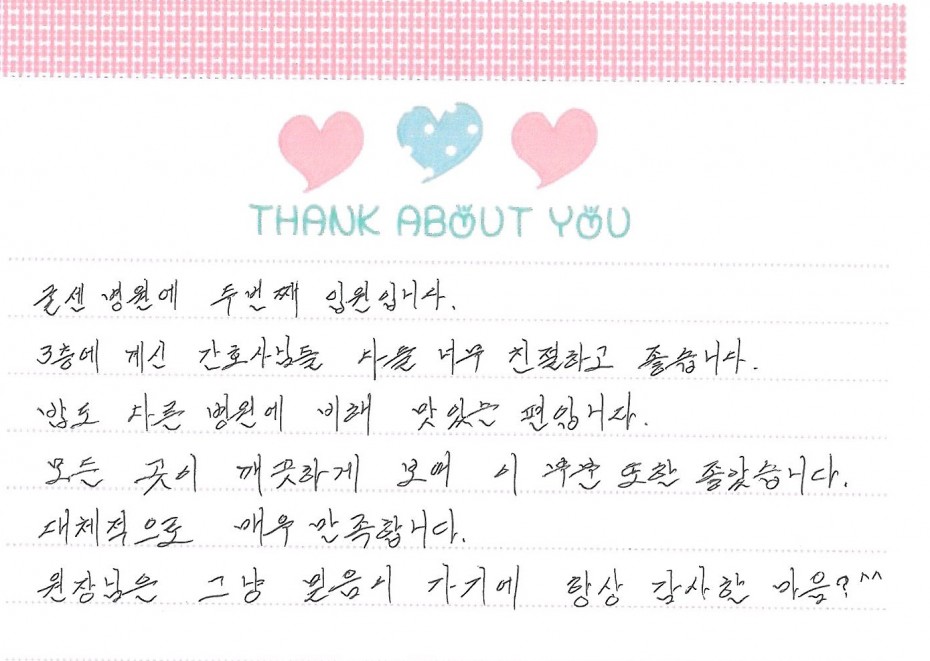 THANK ABOUT YOU
굳센 병원에 두번째 입원입니다.
3층에 계신 간호사님들 다들 너무 친절하고 좋습니다.
밥도 다른 병원에 비해 맛있는 편입니다.
모든 곳이 깨끗하게 보여 이 부분 또한 좋았습니다.
대체적으로 매우 만족합니다.
원장님은 그냥 믿음이 가기에 항상 감사한 마음?^^